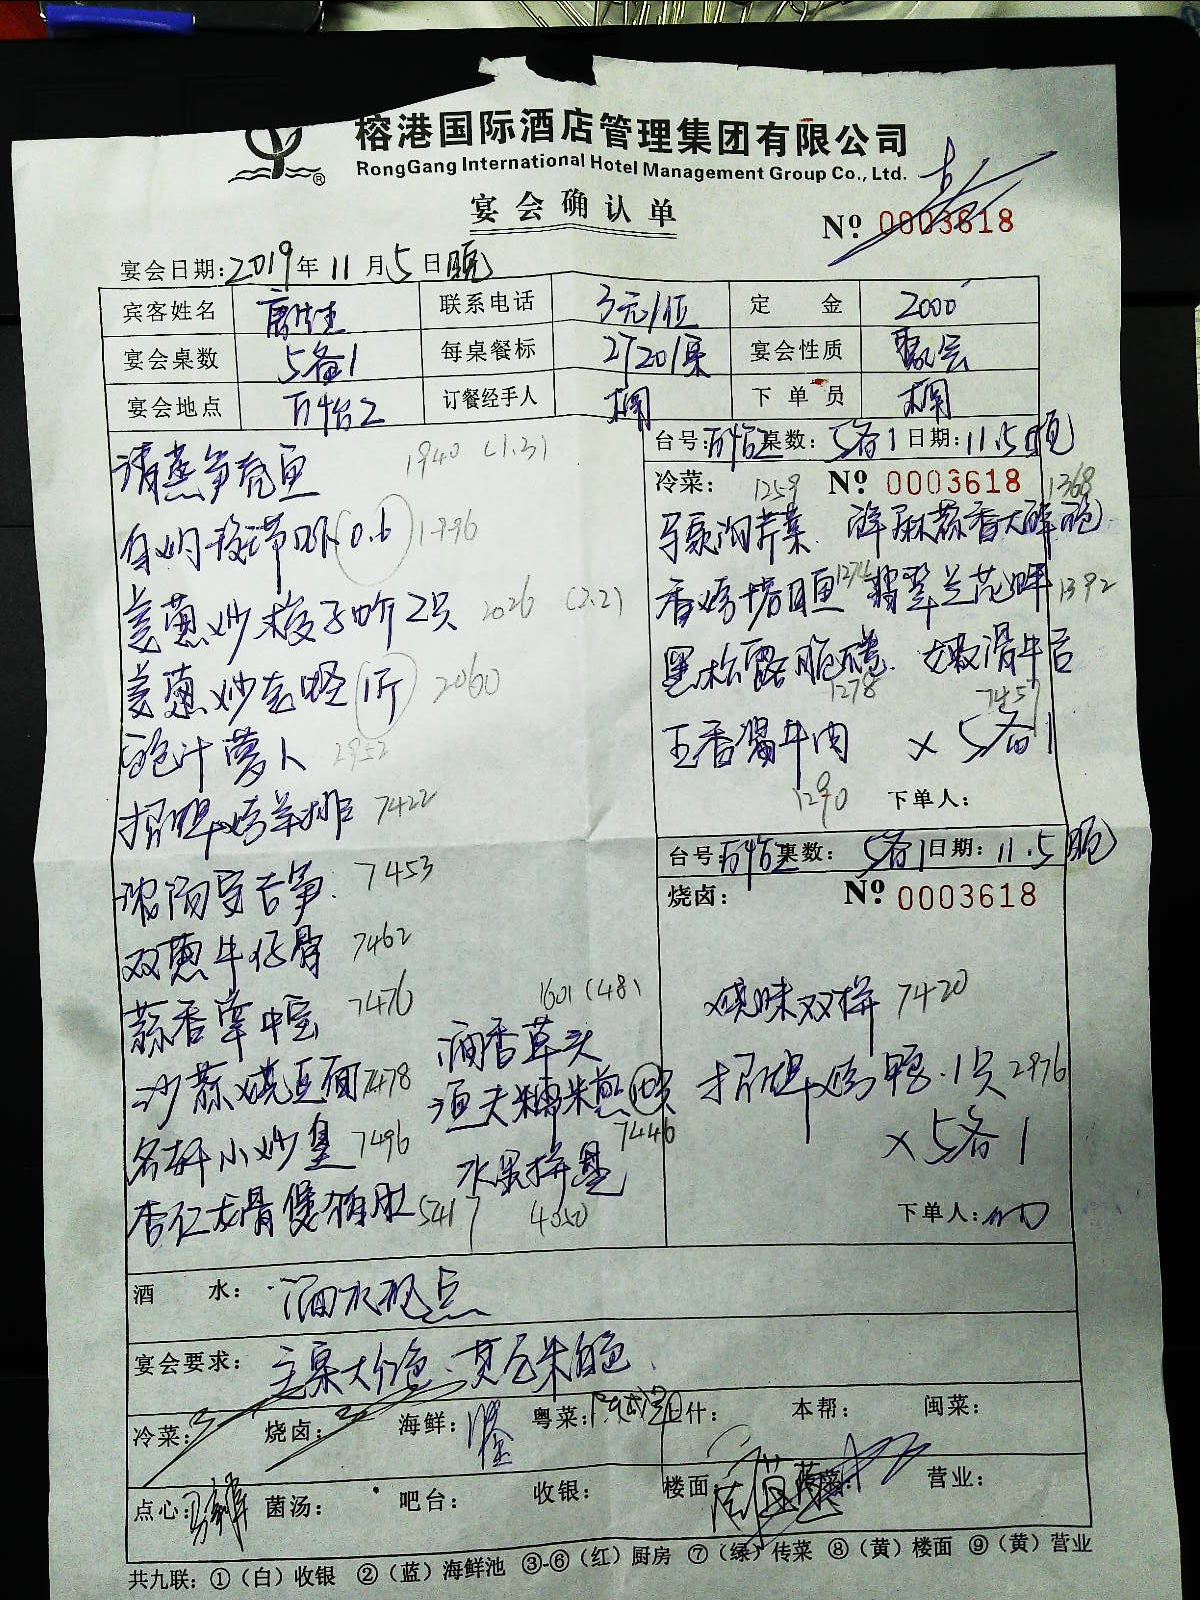 榕港国际酒店管理集团有限公司
RongGang International Hotel Management Group Co., Ltd.
宴会确认单
№ 0003618
宴会日期:2019年11月5日晚
宾客姓名 唐先生 联系电话 3元/位 定金 2000
宴会桌数 5备1 每桌餐标 2720/桌 宴会性质 聚会
宴会地点 订餐经手人 下单员
清蒸笋壳鱼 1940 (1.3)
(0.6) 1996
姜葱炒梭子蟹2只 2026 (2.2)
姜葱炒 1斤 2060
鲍汁萝卜 2952
招牌烤羊排 7422
浓汤 笋 7453
双葱牛仔骨 7462
蒜香掌中宝 7476
沙蒜烧豆面 7478
名轩小炒皇 7496
杏仁龙骨煲猪肚 5417
1601 (48)
酒香草头
渔夫糯米
7446
水果拼盘
4050
台号: 桌数:5备1 日期:11.5晚
冷菜: 1259 № 0003618 1368
芹菜
1274 翡翠兰花蚌 1392
黑松露脆 嫩滑牛舌
1278 7457
五香酱牛肉 × 5备1
1290 下单人:
台号: 桌数:5备1 日期:11.5晚
烧卤: № 0003618
烧味双拼 7420
招牌烤鸭 1只 2976
× 5备1
下单人:
酒水: 酒水现点
宴会要求: 主桌大红色、其它米白色
冷菜: 烧卤: 海鲜: 粤菜: 上什: 本帮: 闽菜:
点心: 菌汤: 吧台: 收银: 楼面: 传菜: 营业:
共九联:①(白)收银 ②(蓝)海鲜池 ③-⑥(红)厨房 ⑦(绿)传菜 ⑧(黄)楼面 ⑨(黄)营业